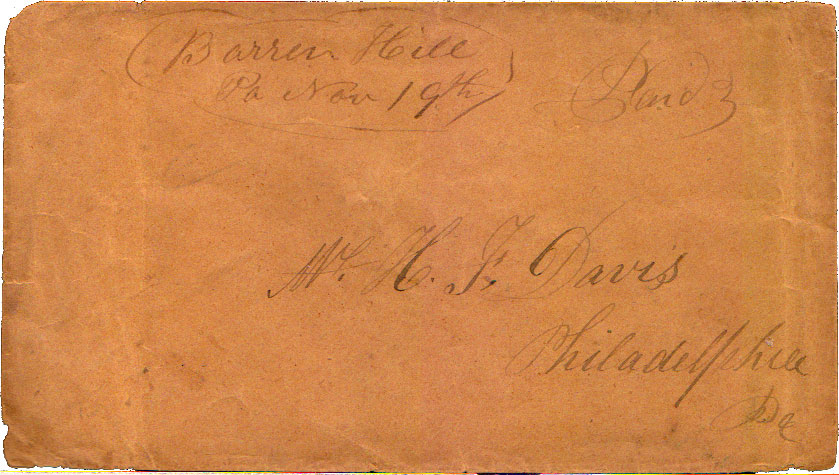 Barren Hill
Pa Nov 19th
Paid 3
Mr. H. F. Davis
Philadelphia
Pa